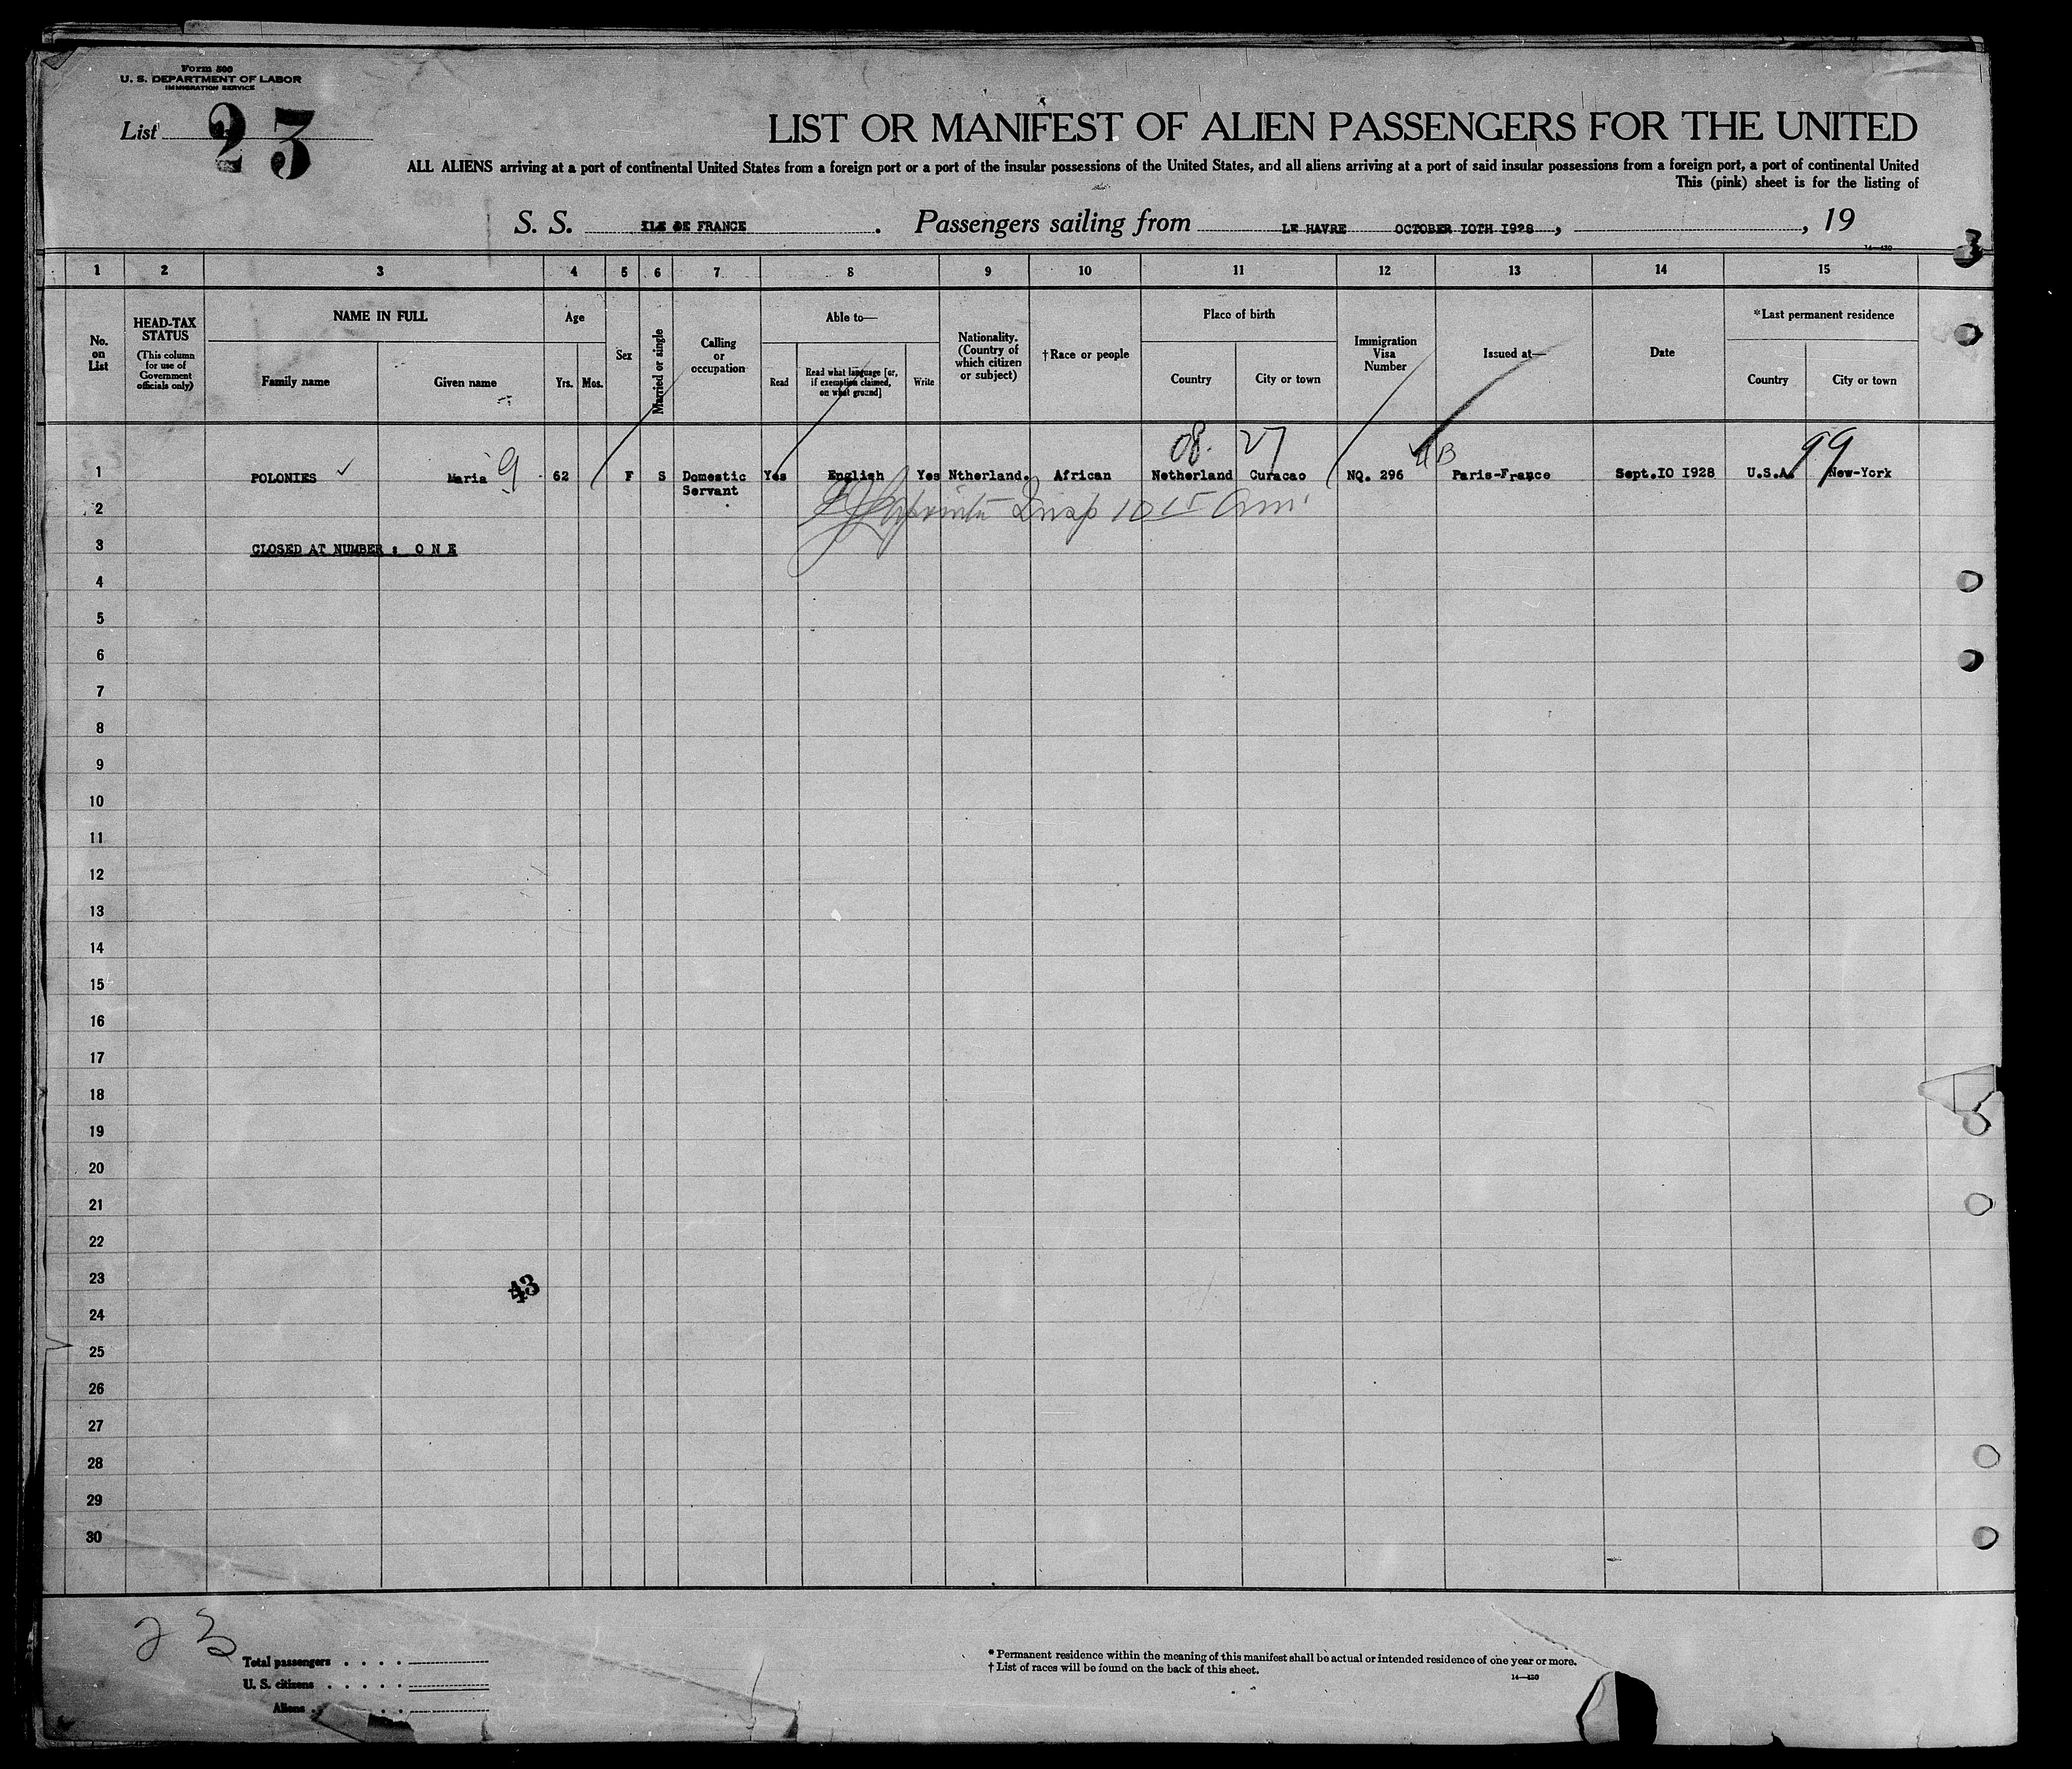 Form 500
U. S. DEPARTMENT OF LABOR
IMMIGRATION SERVICE
List 23
LIST OR MANIFEST OF ALIEN PASSENGERS FOR THE UNITED
ALL ALIENS arriving at a port of continental United States from a foreign port or a port of the insular possessions of the United States, and all aliens arriving at a port of said insular possessions from a foreign port, a port of continental United
This (pink) sheet is for the listing of
S. S. ILE DE FRANCE. Passengers sailing from LE HAVRE OCTOBER IOTH I928, , 19
14—430
3
1 2 3 4 5 6 7 8 9 10 11 12 13 14 15
No. on List
HEAD-TAX STATUS
(This column for use of Government officials only)
NAME IN FULL
Family name Given name
Age
Yrs. Mos.
Sex
Married or single
Calling or occupation
Able to—
Read
Read what language [or, if exemption claimed, on what ground]
Write
Nationality. (Country of which citizen or subject)
†Race or people
Place of birth
Country City or town
Immigration Visa Number
Issued at—
Date
*Last permanent residence
Country City or town
08. 27 99
1 POLONIES Maria 9 62 F S Domestic Yes English Yes Ntherland. African Netherland Curacao NQ. 296 Paris-France Sept.IO I928 U.S.A. New-York
Servant
2 Insp 10 15 am
3 CLOSED AT NUMBER : O N E
4
5
6
7
8
9
10
11
12
13
14
15
16
17
18
19
20
21
22
23
43
24
25
26
27
28
29
30
23
Total passengers . . . .
U. S. citizens . . . . .
Aliens . . . .
* Permanent residence within the meaning of this manifest shall be actual or intended residence of one year or more.
† List of races will be found on the back of this sheet.
14—430